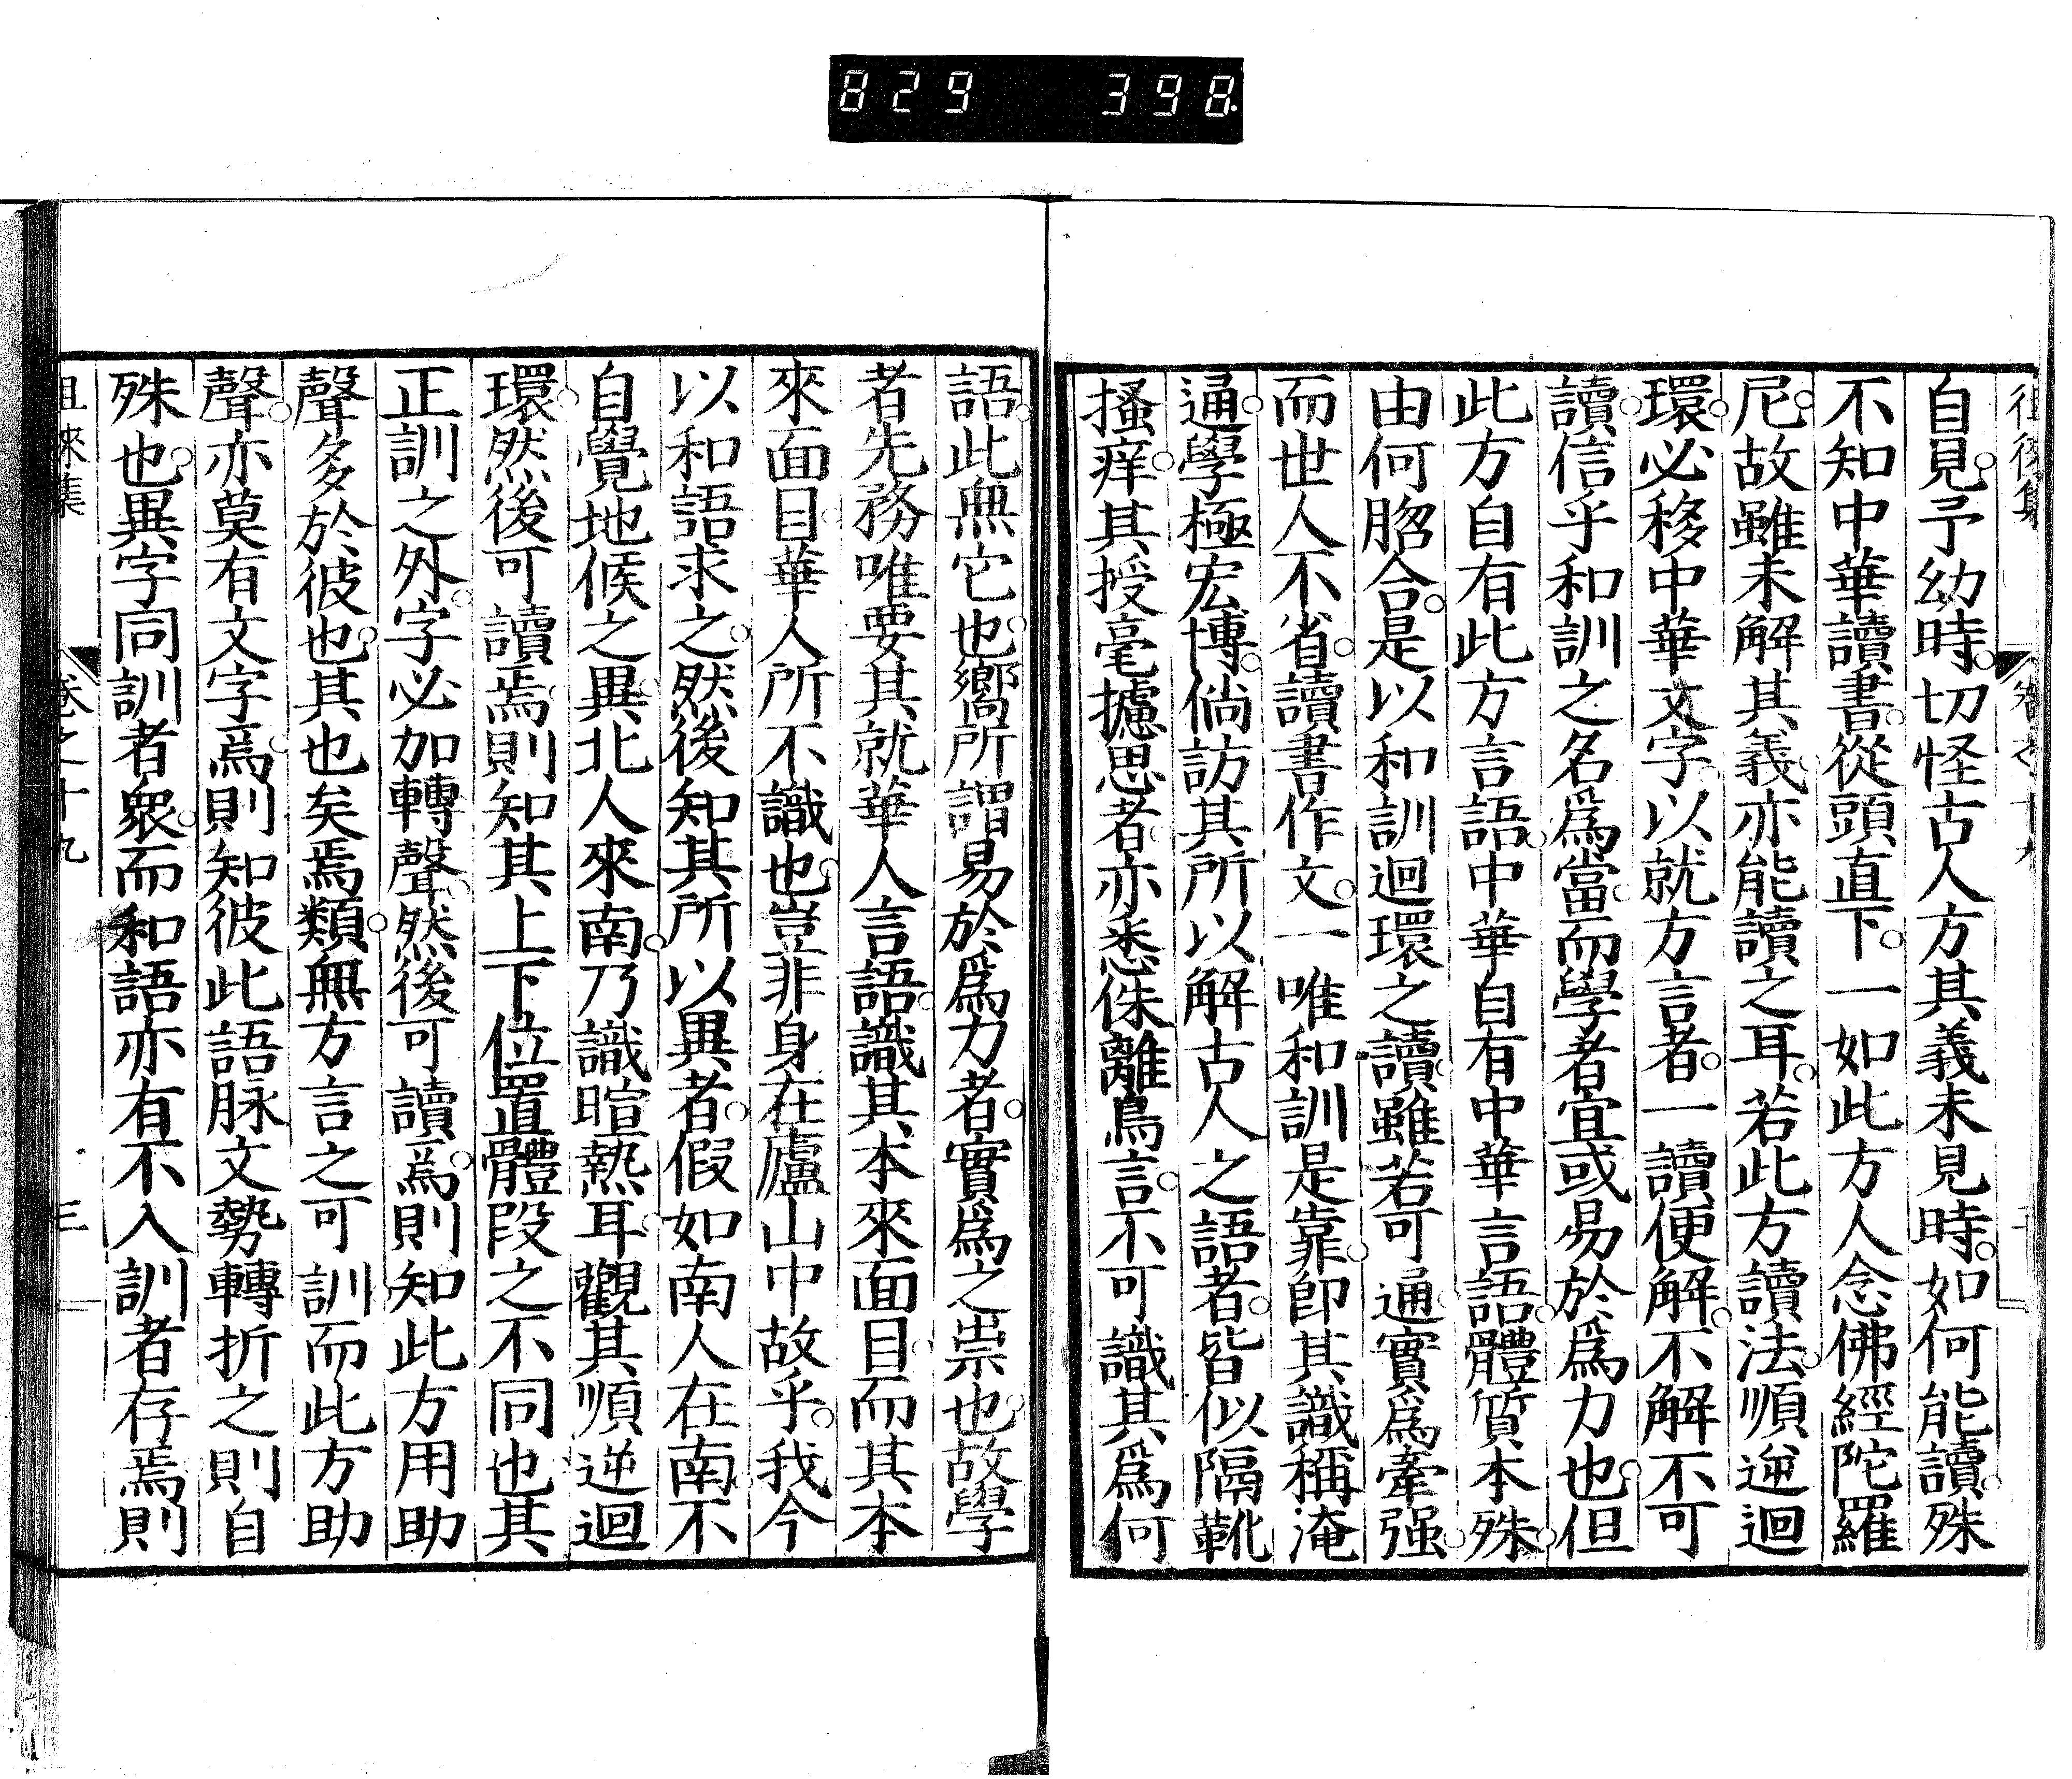 829 398.
徂徠集
自見。予幼時。切怪古人方其義未見時。如何能讀。殊
不知中華讀書。從頭直下。一如此方人念佛經陀羅
尼。故雖未解其義。亦能讀之耳。若此方讀法。順逆迴
環。必移中華文字。以就方言者。一讀便解。不解不可
讀。信乎和訓之名爲當。而學者宜或易於爲力也。但
此方自有此方言語。中華自有中華言語。體質本殊。
由何脗合。是以和訓迴環之讀。雖若可通。實爲牽强。
而世人不省。讀書作文。一唯和訓是靠。卽其識稱淹
通。學極宏博。倘訪其所以解古人之語者。皆似隔靴
搔痒。其授毫攄思者。亦悉侏離鳥言。不可識其爲何
語。此無它也。嚮所謂易於爲力者。實爲之祟也。故學
者先務。唯要其就華人言語。識其本來面目。而其本
來面目。華人所不識也。豈非身在廬山中故乎。我今
以和語求之。然後知其所以異者。假如南人在南。不
自覺地候之異。北人來南。乃識暄熱耳。觀其順逆迴
環。然後可讀焉。則知其上下位置體段之不同也。其
正訓之外。字必加轉聲。然後可讀焉。則知此方用助
聲多於彼也。其也矣焉類。無方言之可訓。而此方助
聲。亦莫有文字焉。則知彼此語脉文勢轉折之則自
殊也。異字同訓者衆。而和語亦有不入訓者存焉。則
徂徠集 卷之十九 三